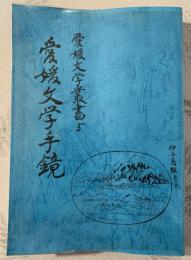 愛媛文学叢書5
愛媛文学手鏡